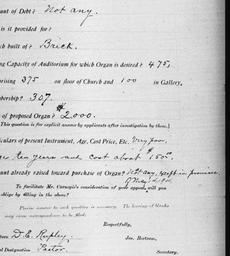 ount of Debt? Not any.
is it provided for?
ch built of? Brick.
ng Capacity of Auditorium for which Organ is desired? 475,
prising 375 on floor of Church and 100 in Gallery,
mbership? 307.
of proposed Organ? $2000.
This question is for explicit answer by applicants after investigation by them.)
iculars of present Instrument, Age, Cost Price, Etc. Very poor,
ten years and cost about $150.
unt already raised toward purchase of Organ? Not any, except in promise
To facilitate Mr. Carnegie's consideration of your appeal, will you
oblige by filling in the above?
Please answer to each question is necessary. The leaving of blanks
may cause correspondence to be filed.
Respectfully,
D. E. Rupley, Jas. Bertram,
l Designation Pastor Secretary.